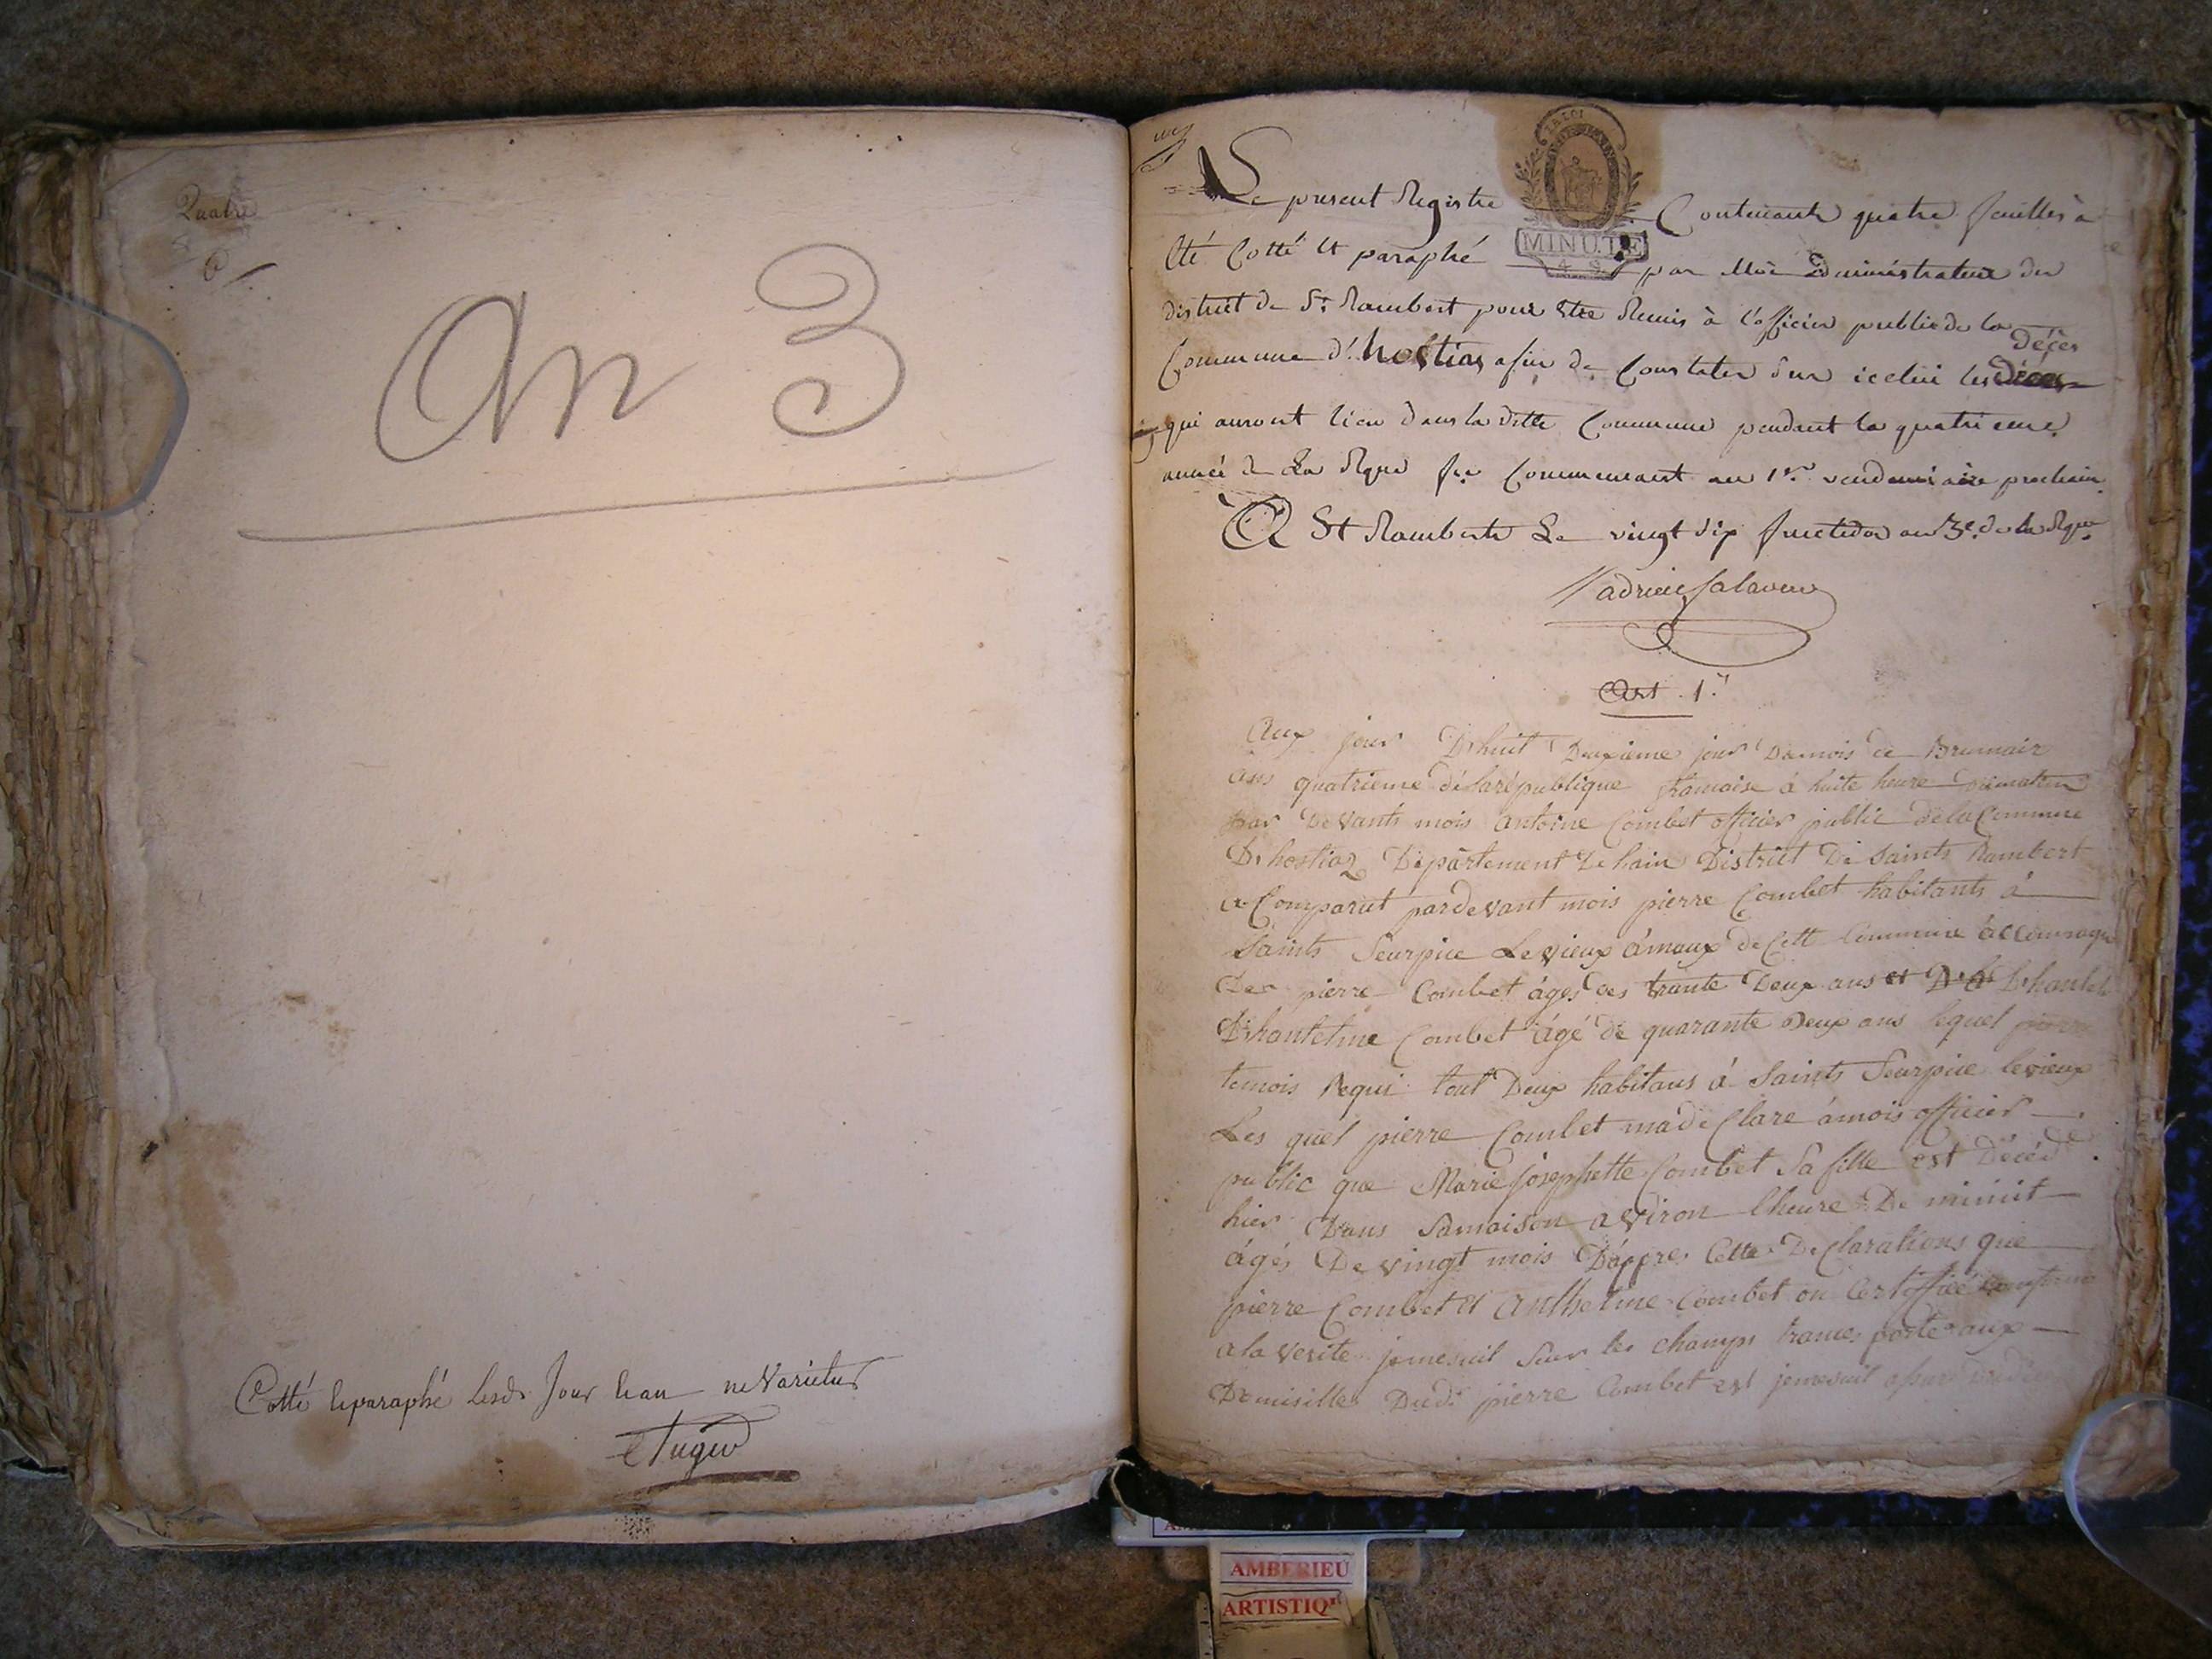 Quatre
An 3
Cotté et paraphé lesd. Jour et an ne Varietur
LA LOI
MINUTE
Le present Registre Contenant quatre feuilles à
été Cotté et paraphé par Moi administrateur du
district de St. Rambert pour être Remis à l'officier public de la
décès
Commune d'hostias afin de Constater sur icelui les décès
qui auront lieu dans la ditte Commune pendant la quatrieme
année de La Rque fse Commencant au 1er. vendemiaire prochain
A St Rambert Le vingt six fructidor an 3e. de la Rque
Art. 1er
Aux jour D'huit Deuxieme jour Du mois de Brumair
ans quatrieme dé la république franoise á huite heure du matin
par Devants mois antoine Combet officier public de la Commune
D'hostiaz Département De hain District De saints Rambert
a Comparut pardevant mois pierre Combet habitants á
saints Seurpice Le vieux ámaux de Cett Commune accompagn
De pierre Combet áges des trante Deux ans et
D'hantelme Combet ágé de quarante Deux ans lequel
temois Requi tout Deux habitans á Saints Seurpice le vieux
Les quel pierre Combet ma de Clare ámois officier
public que Marie josephette Combet Sa fille est Décédé
hier Dans Samaison a viron lheure De minuit
ágés De vingt mois Dáppres Cette De Clarations que
pierre Combet et Anthelme Combet on Certiffié
a la verite jemesuit Sur les champs trances porte aux
Domisille Dud. pierre Combet est jemesuit
AMBERIEU
ARTISTIQ